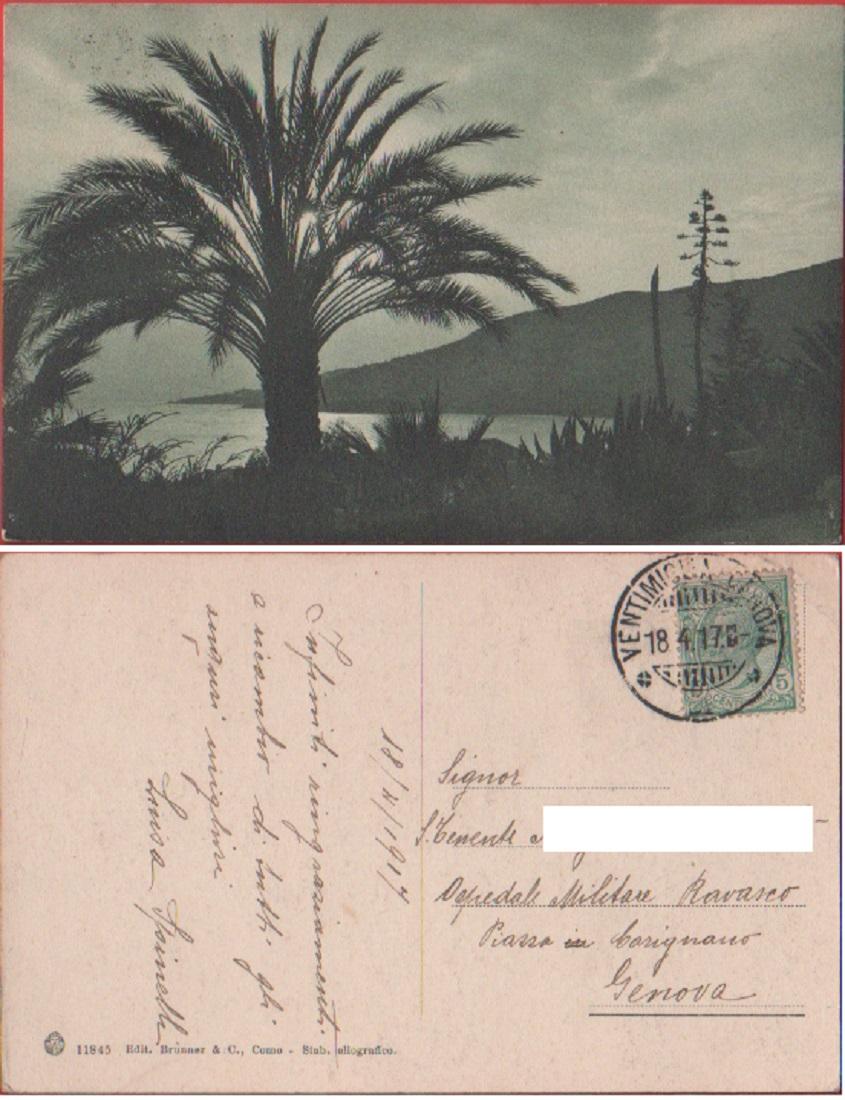 VENTIMIGLIA GENOVA
18.4.17.
5
18/4/1917
Infiniti ringraziamenti
e ricambio di tutti gli
auguri migliori
Luisa Spinelli
Signor
S. Tenente
Ospedale Militare Ravasco
Piazza in Carignano
Genova
11845 Edit. Brunner & C., Como - Stab. eliografico.